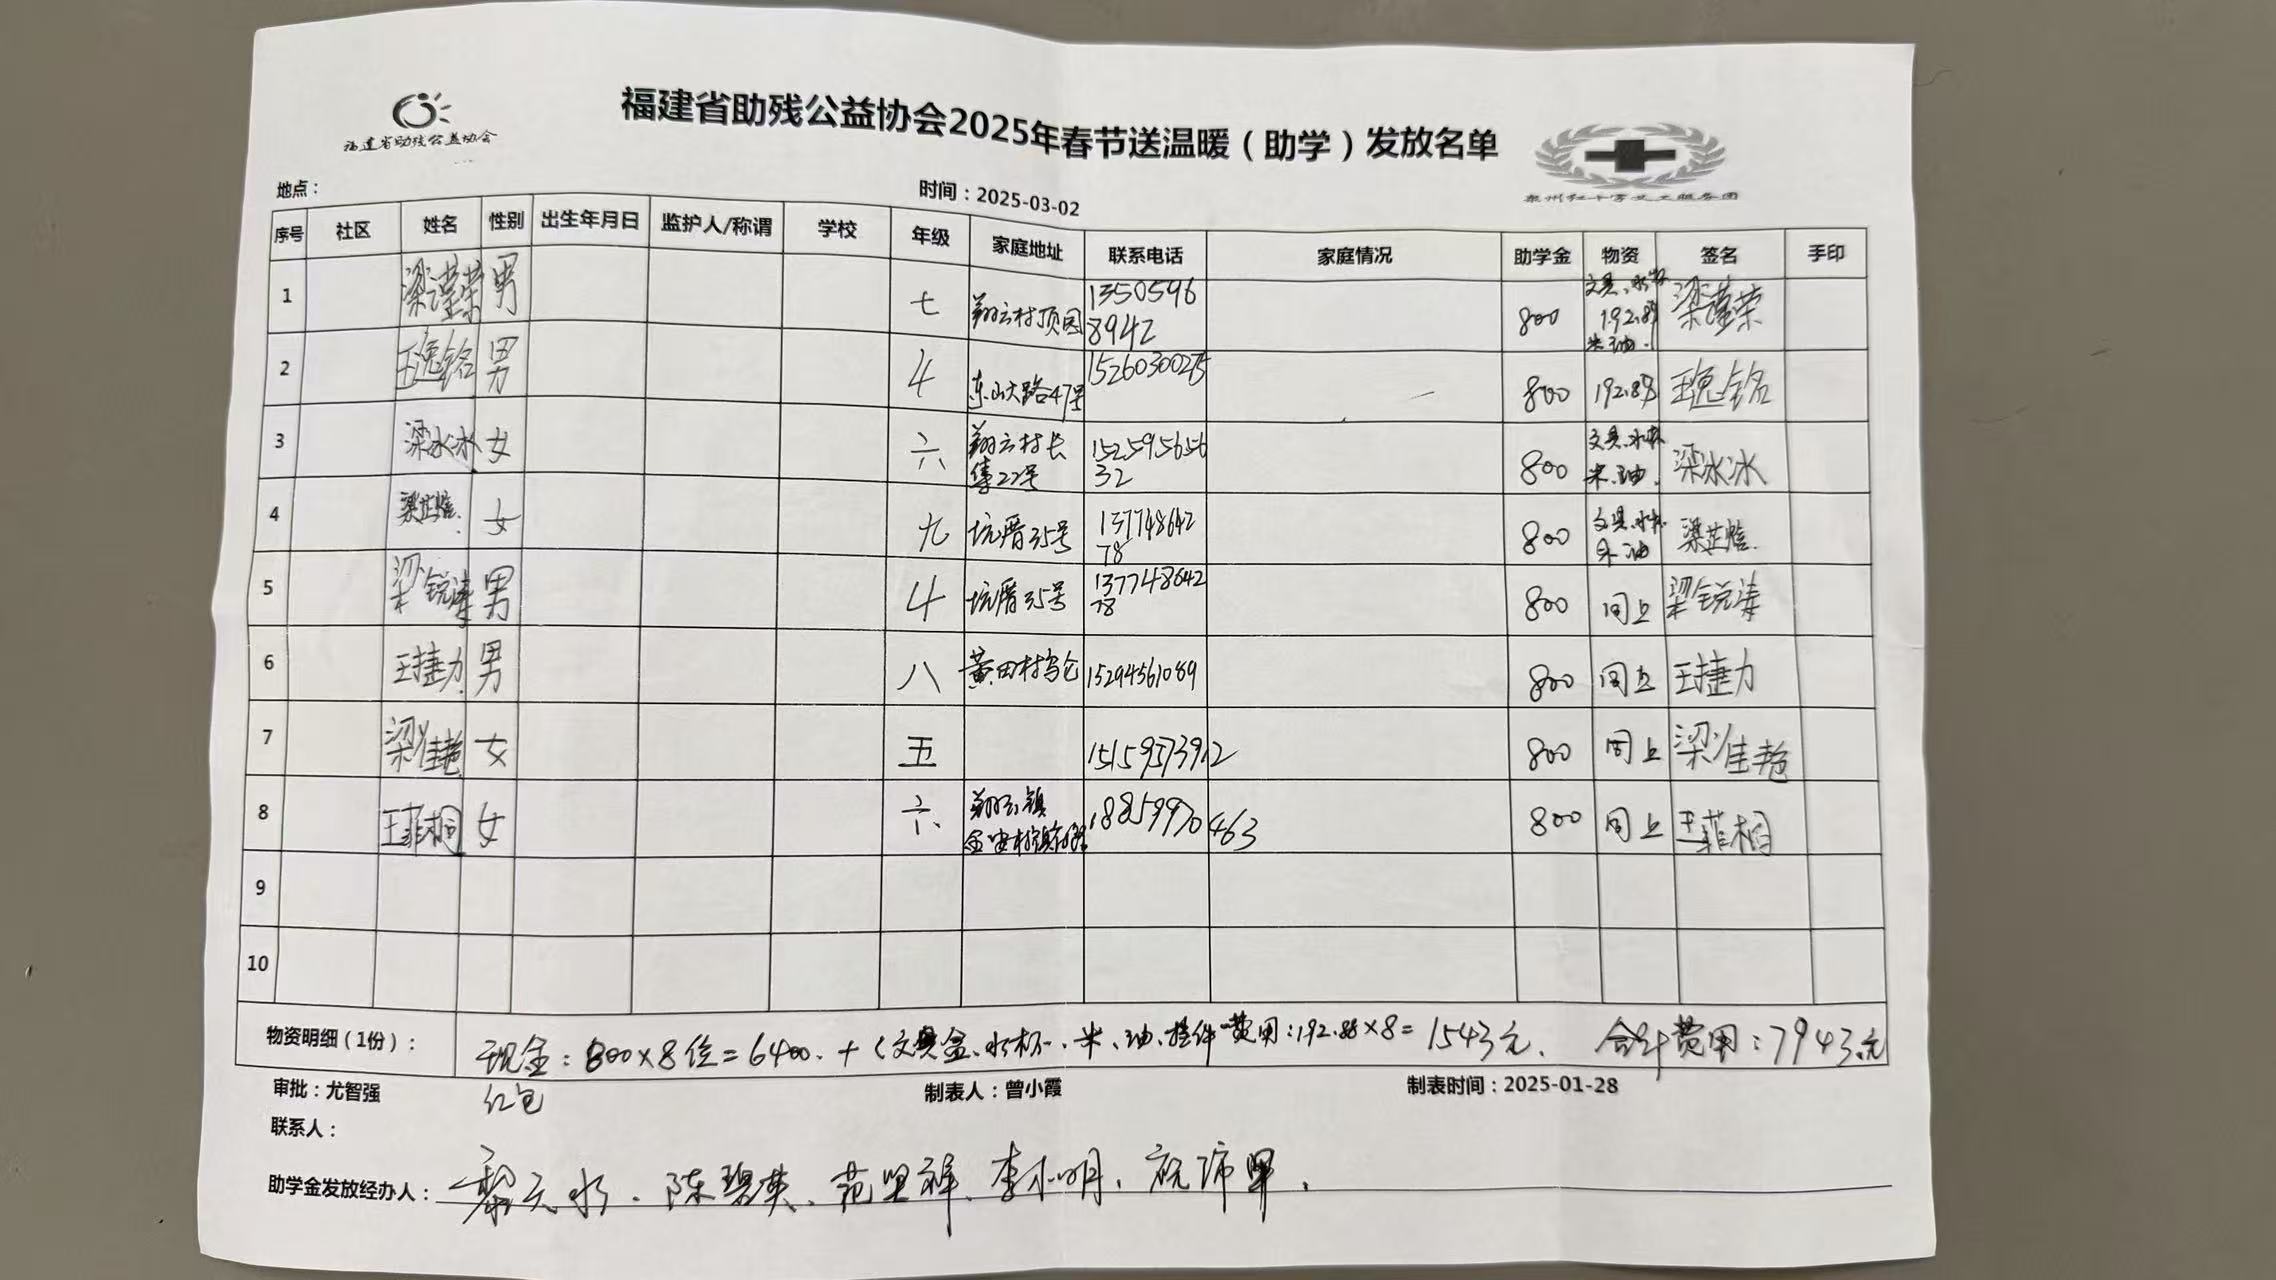 福建省助残公益协会
福建省助残公益协会2025年春节送温暖（助学）发放名单
泉州红十字义工服务团
地点：
时间：2025-03-02
序号 社区 姓名 性别 出生年月日 监护人/称谓 学校 年级 家庭地址 联系电话 家庭情况 助学金 物资 签名 手印
1 梁瑾荣 男 七 翔云村顶园 13505968942 800 文具、水杯 192.88 米、油. 梁瑾荣
2 王逸铭 男 4 东山大路47号 15260300275 800 192.88 王逸铭
3 梁冰冰 女 六 翔云村长 22号 15259565632 800 文具、水杯 米、油. 梁冰冰
4 梁芷焓. 女 九 坑厝35号 13774864278 800 文具、水杯 米、油 梁芷焓.
5 梁锐涛 男 4 坑厝35号 13774864278 800 同上 梁锐涛
6 王捷力 男 八 黄田村乌仑 15294561089 800 同上 王捷力
7 梁佳艳 女 五 15159573912 800 同上 梁佳艳
8 王菲桐 女 六 翔云镇 18859970463 800 同上 王菲桐
9
10
物资明细（1份）：
现金：800×8位=6400. +（文具盒、水杯、米、油、挂件 费用：192.88×8=1543元. 合计费用：7943元
红包
审批：尤智强
制表人：曾小霞
制表时间：2025-01-28
联系人：
助学金发放经办人： 陈碧英、范 祥、李小明、